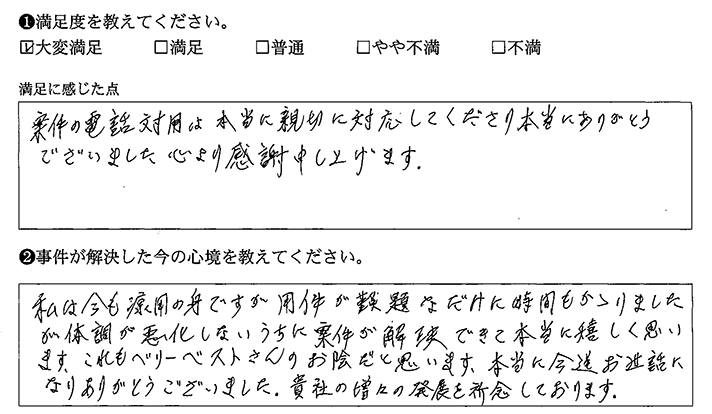 ❶満足度を教えてください。
☑大変満足 □満足 □普通 □やや不満 □不満
満足に感じた点
案件の電話対用は本当に親切に対応してくださり本当にありがとう
でざいました心より感謝申し上げます.
❷事件が解決した今の心境を教えてください。
私は今も療用の身ですが用件が難題なだけに時間もかゝりました
が体調が悪化しないうちに案件が解決できて本当に嬉しく思い
ます.これもベリーベストさんのお陰だと思います.本当に今迄お世話に
なりありがとうございました.貴社の増々の発展を祈念しております.